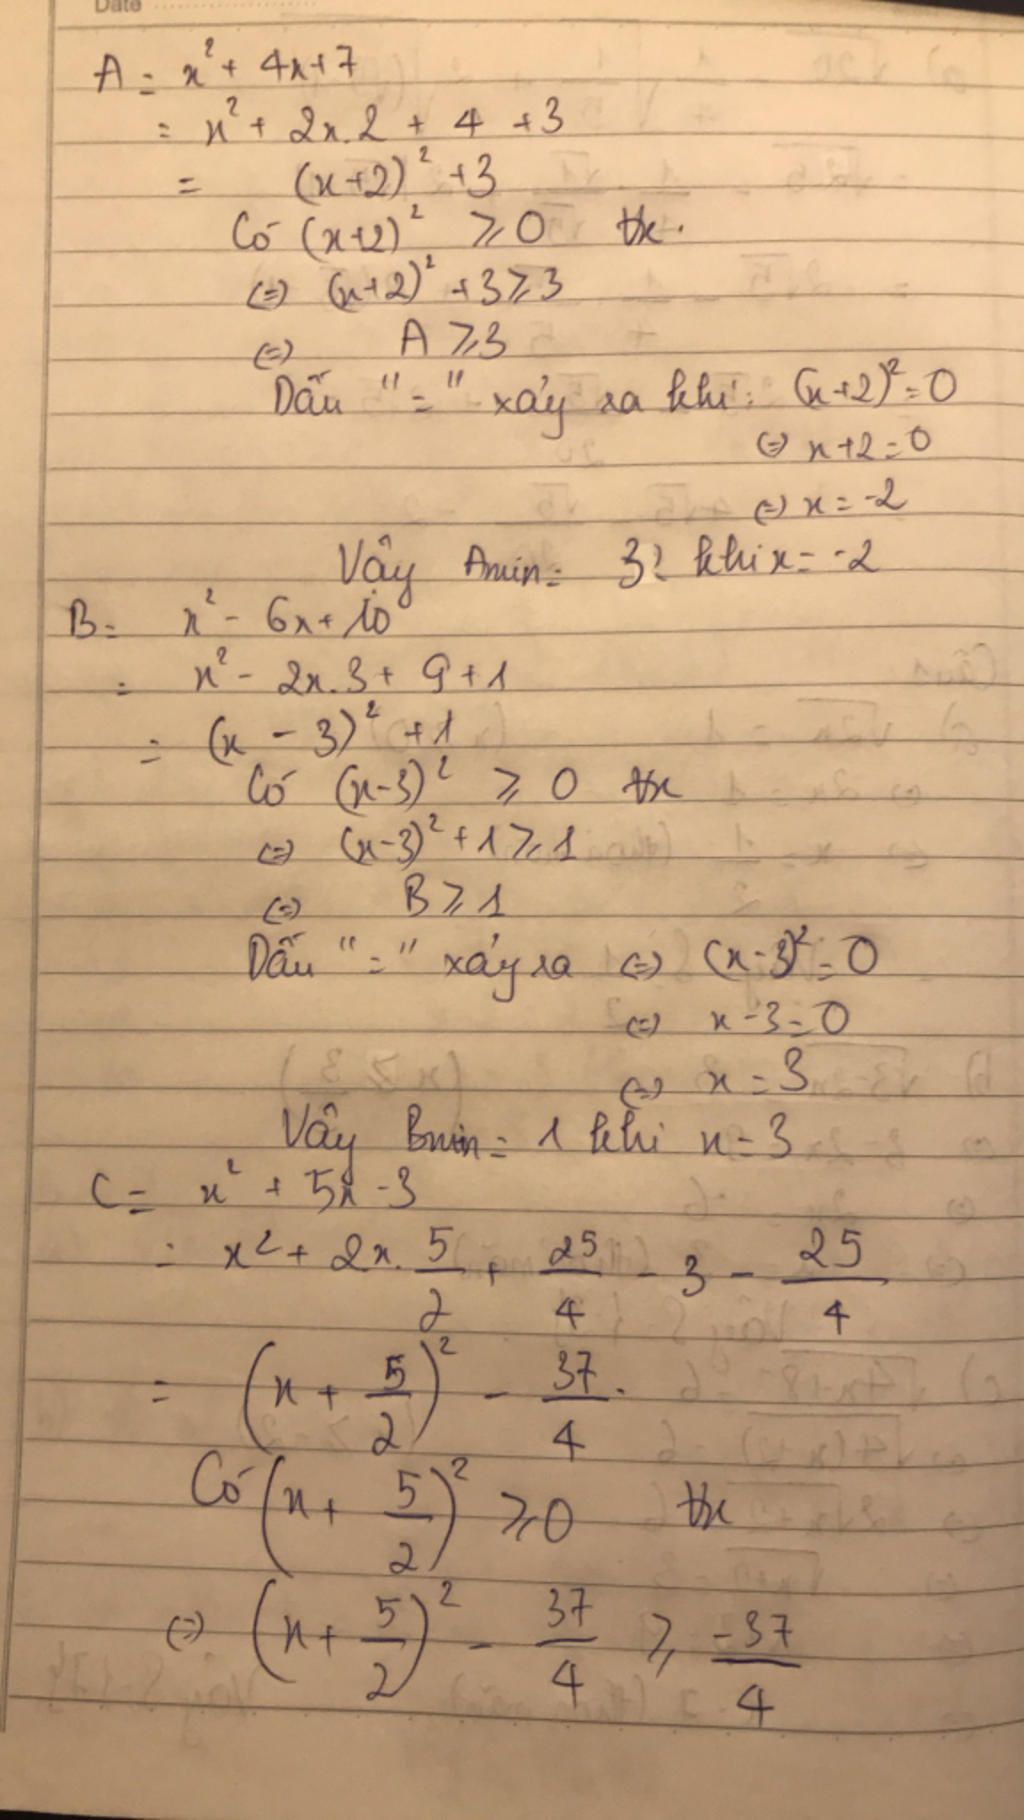 Date
A = x² + 4x + 7
= x² + 2x.2 + 4 + 3
= (x+2)² + 3
Có (x+2)² ≥ 0 ∀x.
(=) (x+2)² + 3 ≥ 3
(=) A ≥ 3
Dấu "=" xảy ra khi: (x+2)² = 0
(=) x+2 = 0
(=) x = -2
Vậy Amin = 3 khi x = -2
B = x² - 6x + 10
= x² - 2x.3 + 9 + 1
= (x - 3)² + 1
Có (x-3)² ≥ 0 ∀x
(=) (x-3)² + 1 ≥ 1
(=) B ≥ 1
Dấu "=" xảy ra (=) (x-3)² = 0
(=) x - 3 = 0
(=) x = 3
Vậy Bmin = 1 khi x = 3
C = x² + 5x - 3
= x² + 2x. 5/2 + 25/4 - 3 - 25/4
= (x + 5/2)² - 37/4.
Có (x + 5/2)² ≥ 0 ∀x
(=) (x + 5/2)² - 37/4 ≥ -37/4